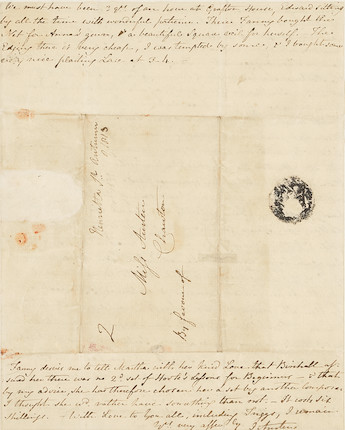 We must have been 3 qrs of an hour at Grafton House, Edward sitting
by all the time with wonderful patience. There Fanny bought the
Net for Anna's gown, & a beautiful Square veil for herself. The
Edging there is very cheap, I was tempted by some, & I bought some
very nice plaiting Lace at 3-4.
Henrietta St Autumn
1813
Miss Austen
Chawton
By favour of
2
Fanny desires me to tell Martha with her kind Love that Birchall as-
sured her there was no 2d set of Hook's Lessons for Beginners - & that
by my advice, she has therefore chosen her a set by another Composer.
I thought she wd rather have something than not. - It costs six
Shillings. - With Love to You all, including Triggs, I remain
Yrs very affecly J. Austen